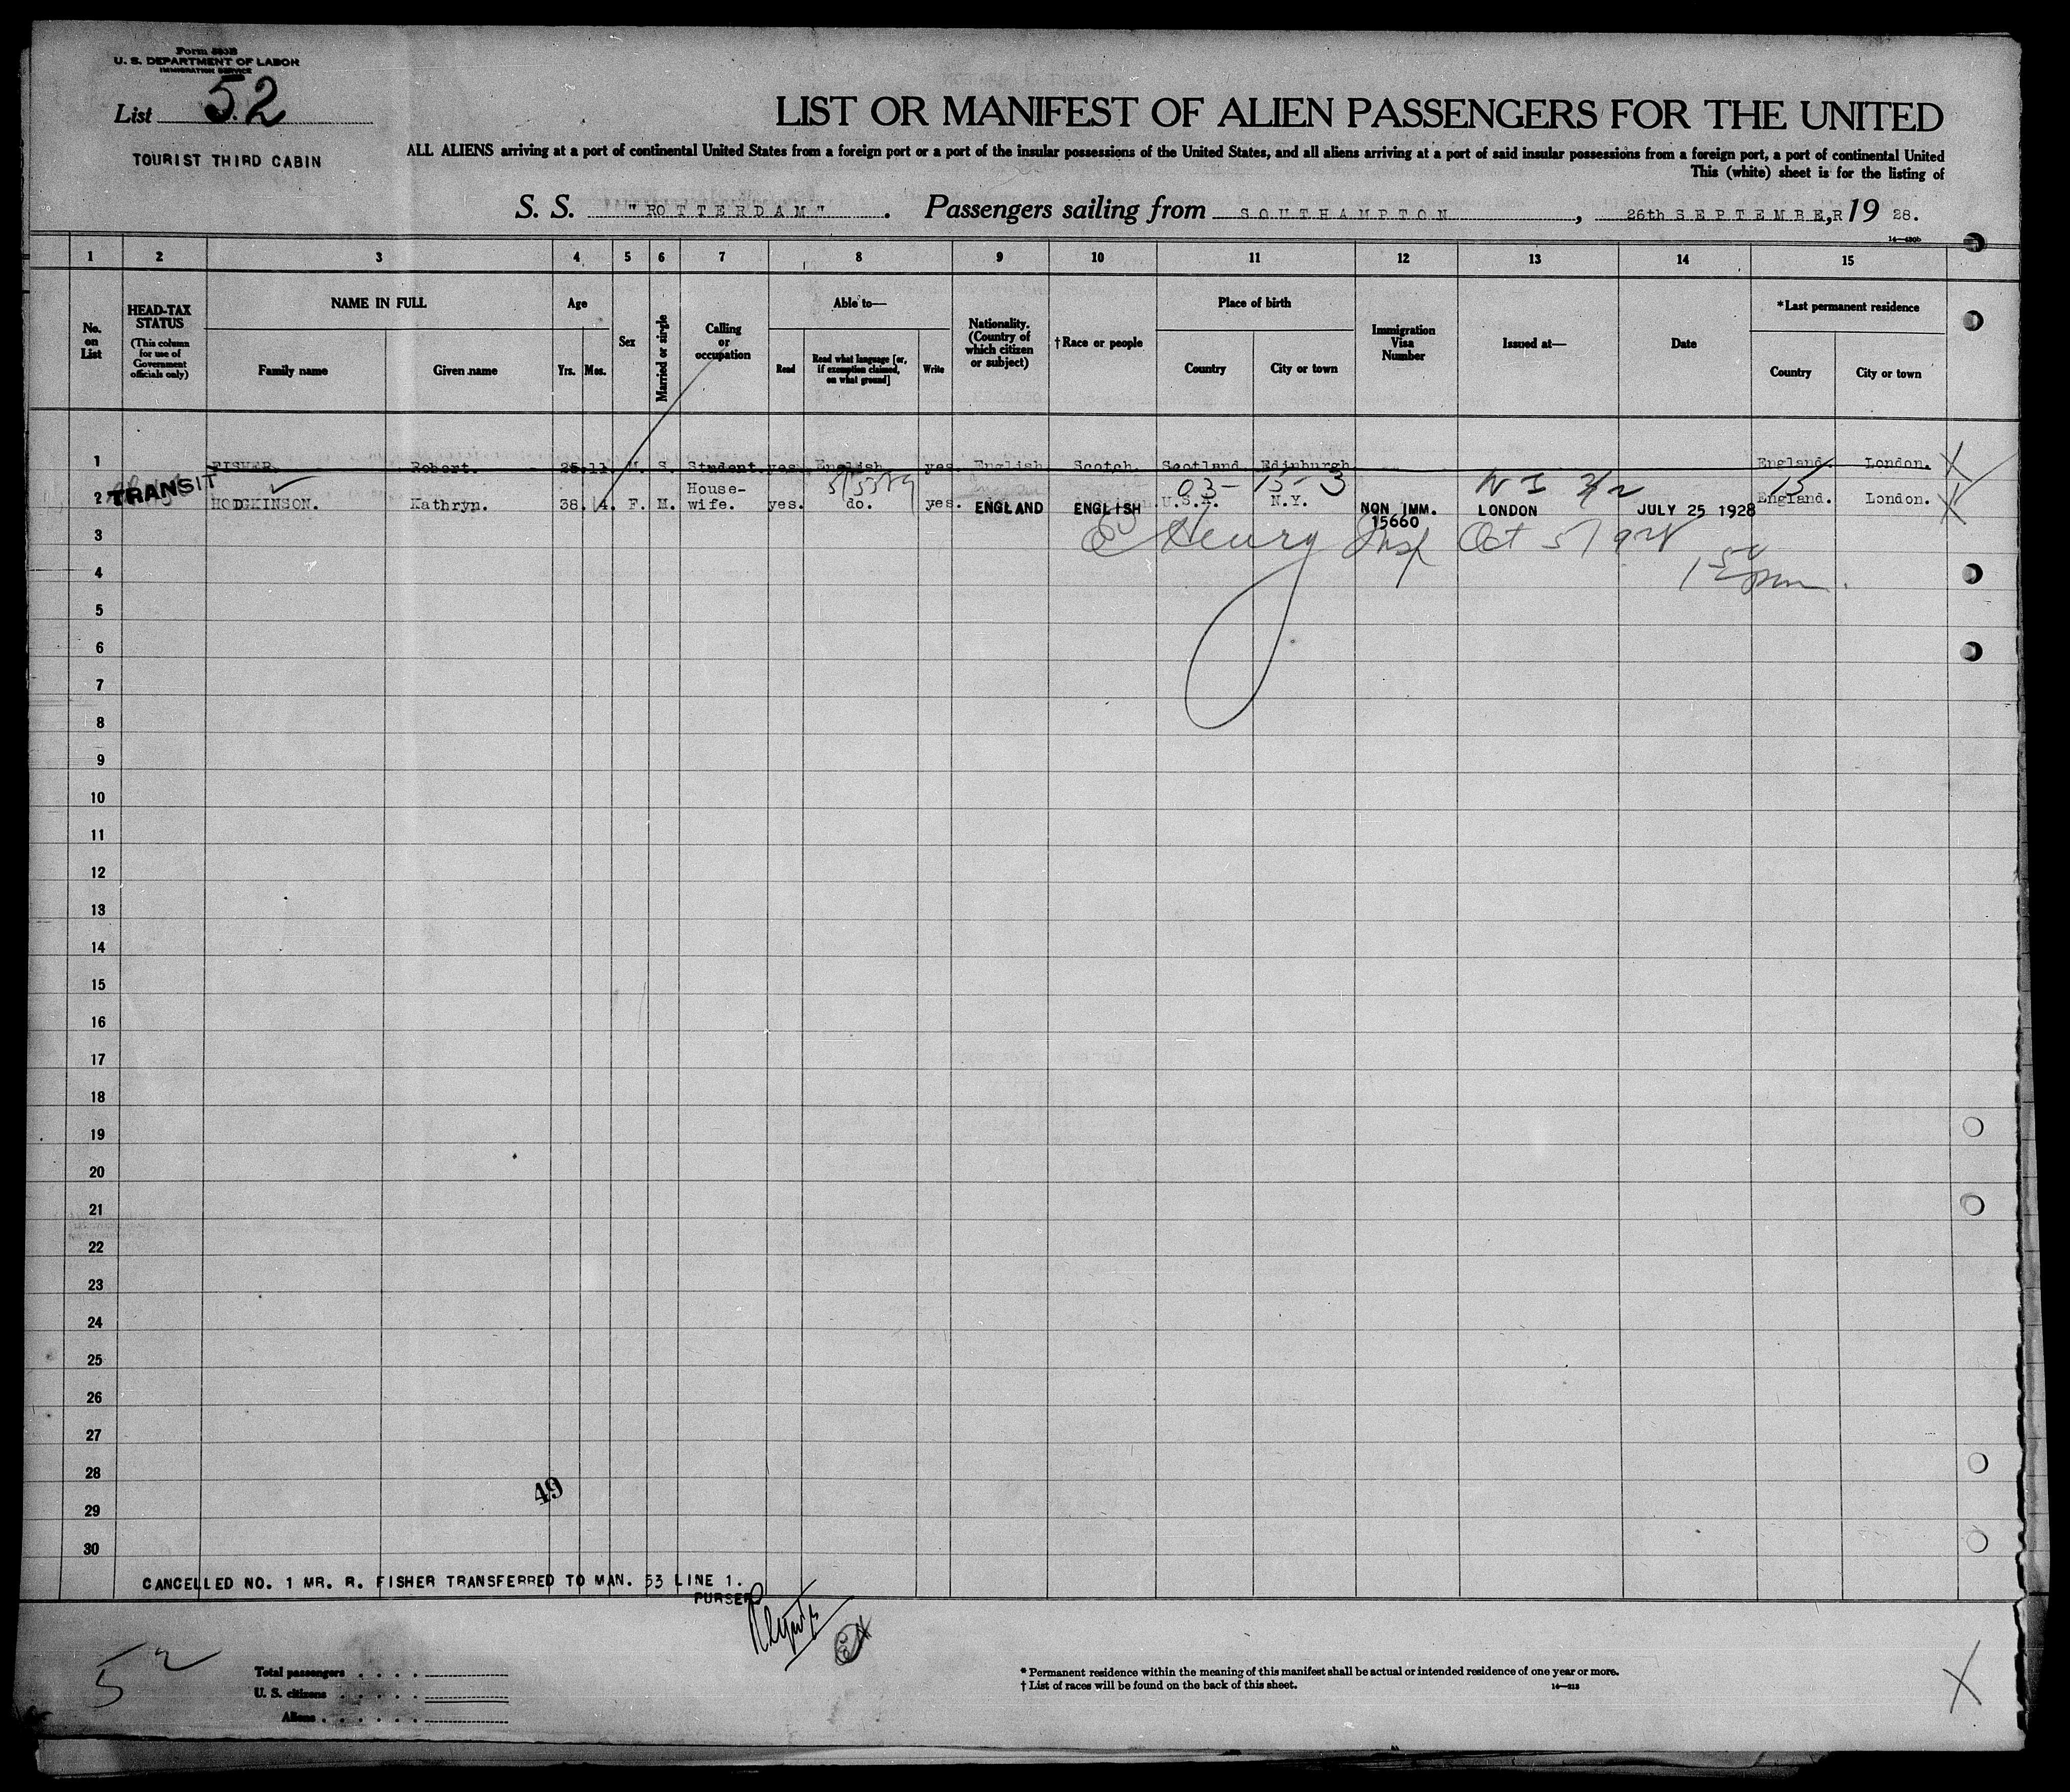 Form 593B
U. S. DEPARTMENT OF LABOR
IMMIGRATION SERVICE
List 52
TOURIST THIRD CABIN
LIST OR MANIFEST OF ALIEN PASSENGERS FOR THE UNITED
ALL ALIENS arriving at a port of continental United States from a foreign port or a port of the insular possessions of the United States, and all aliens arriving at a port of said insular possessions from a foreign port, a port of continental United
This (white) sheet is for the listing of
S. S. "ROTTERDAM". Passengers sailing from SOUTHAMPTON, 26th SEPTEMBER, 19 28.
1 2 3 4 5 6 7 8 9 10 11 12 13 14 15
No. on List
HEAD-TAX STATUS
(This column for use of Government officials only)
NAME IN FULL
Family name Given name
Age
Yrs. Mos.
Sex
Married or single
Calling or occupation
Able to—
Read
Read what language [or, if exemption claimed, on what ground]
Write
Nationality. (Country of which citizen or subject)
†Race or people
Place of birth
Country City or town
Immigration Visa Number
Issued at—
Date
*Last permanent residence
Country City or town
1 FISHER. Robert. 25 11 M. S. Student. yes. English yes. English Scotch. Scotland. Edinburgh. England. London. X
TRANSIT
03- 15- 3
2 HODGKINSON. Kathryn. 38. 4. F. M. House-wife. yes. do. yes. ENGLAND ENGLISH U.S.A. N.Y. NON IMM. 15660 LONDON JULY 25 1928 England. London. X
3 Henry Insp Oct 5/928
4
5
6
7
8
9
10
11
12
13
14
15
16
17
18
19
20
21
22
23
24
25
26
27
28
49
29
30
CANCELLED NO. 1 MR. R. FISHER TRANSFERRED TO MAN. 53 LINE 1.
PURSER
52
Total passengers
U. S. citizens
Aliens
* Permanent residence within the meaning of this manifest shall be actual or intended residence of one year or more.
† List of races will be found on the back of this sheet.
X